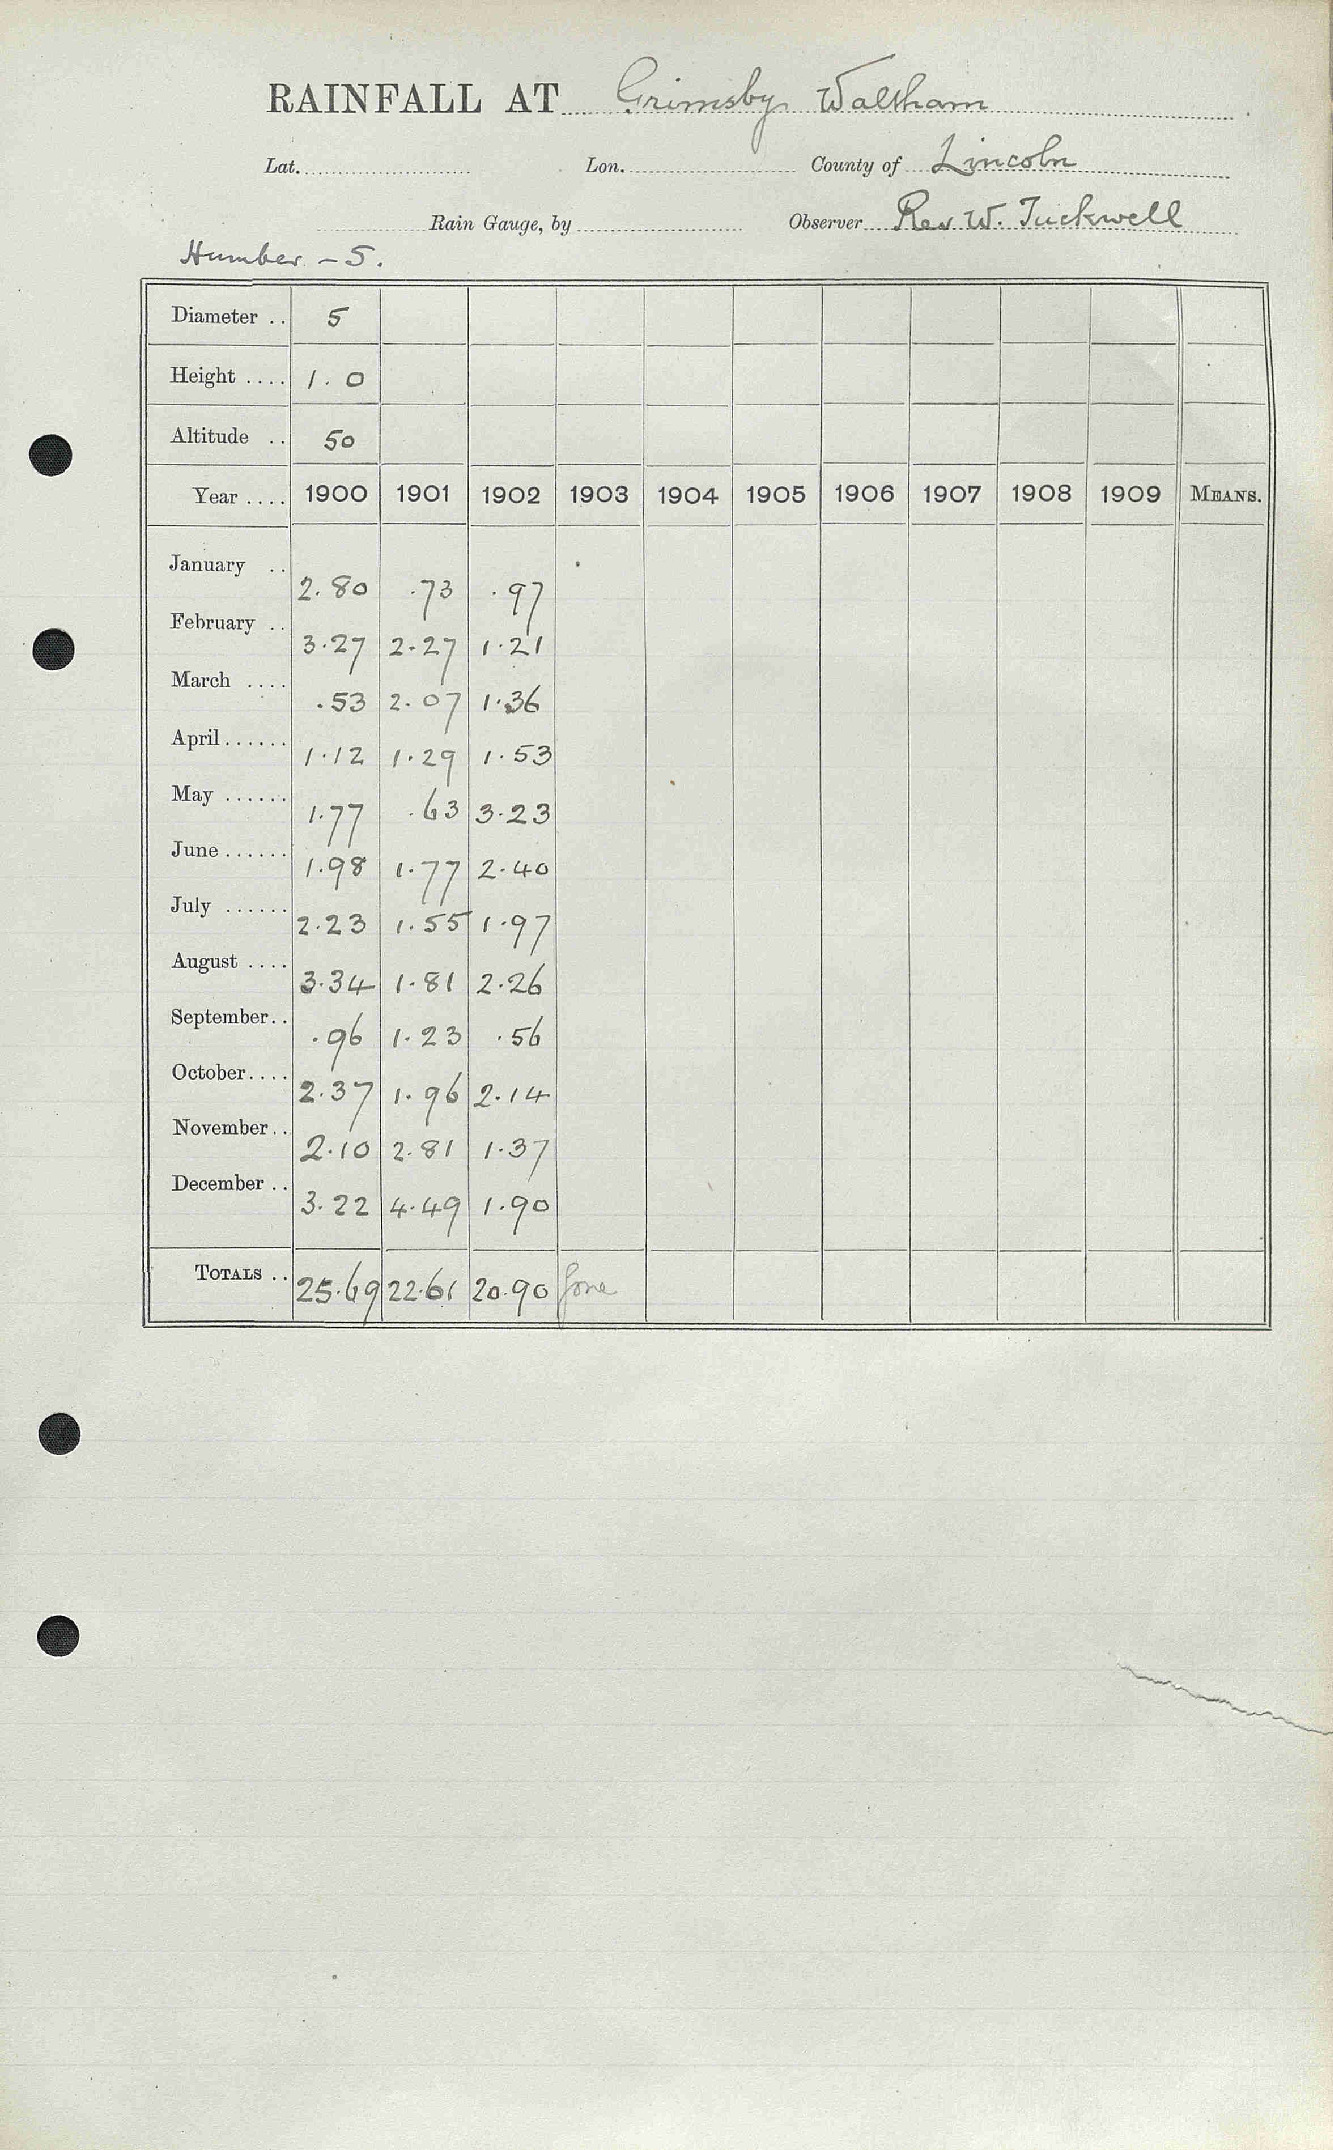 RAINFALL AT Grimsby, Waltham
Lat. Lon. County of Lincoln
Rain Gauge, by Observer Rev W. Tuckwell
Humber - S.
Diameter .. 5
Height .... 1. 0
Altitude .. 50
Year .... 1900 1901 1902 1903 1904 1905 1906 1907 1908 1909 MEANS.
January .. 2.80 .73 .97
February .. 3.27 2.27 1.21
March .... .53 2.07 1.36
April...... 1.12 1.29 1.53
May ...... 1.77 .63 3.23
June...... 1.98 1.77 2.40
July ...... 2.23 1.55 1.97
August .... 3.34 1.81 2.26
September.. .96 1.23 .56
October.... 2.37 1.96 2.14
November.. 2.10 2.81 1.37
December .. 3.22 4.49 1.90
TOTALS .. 25.69 22.61 20.90 Gone